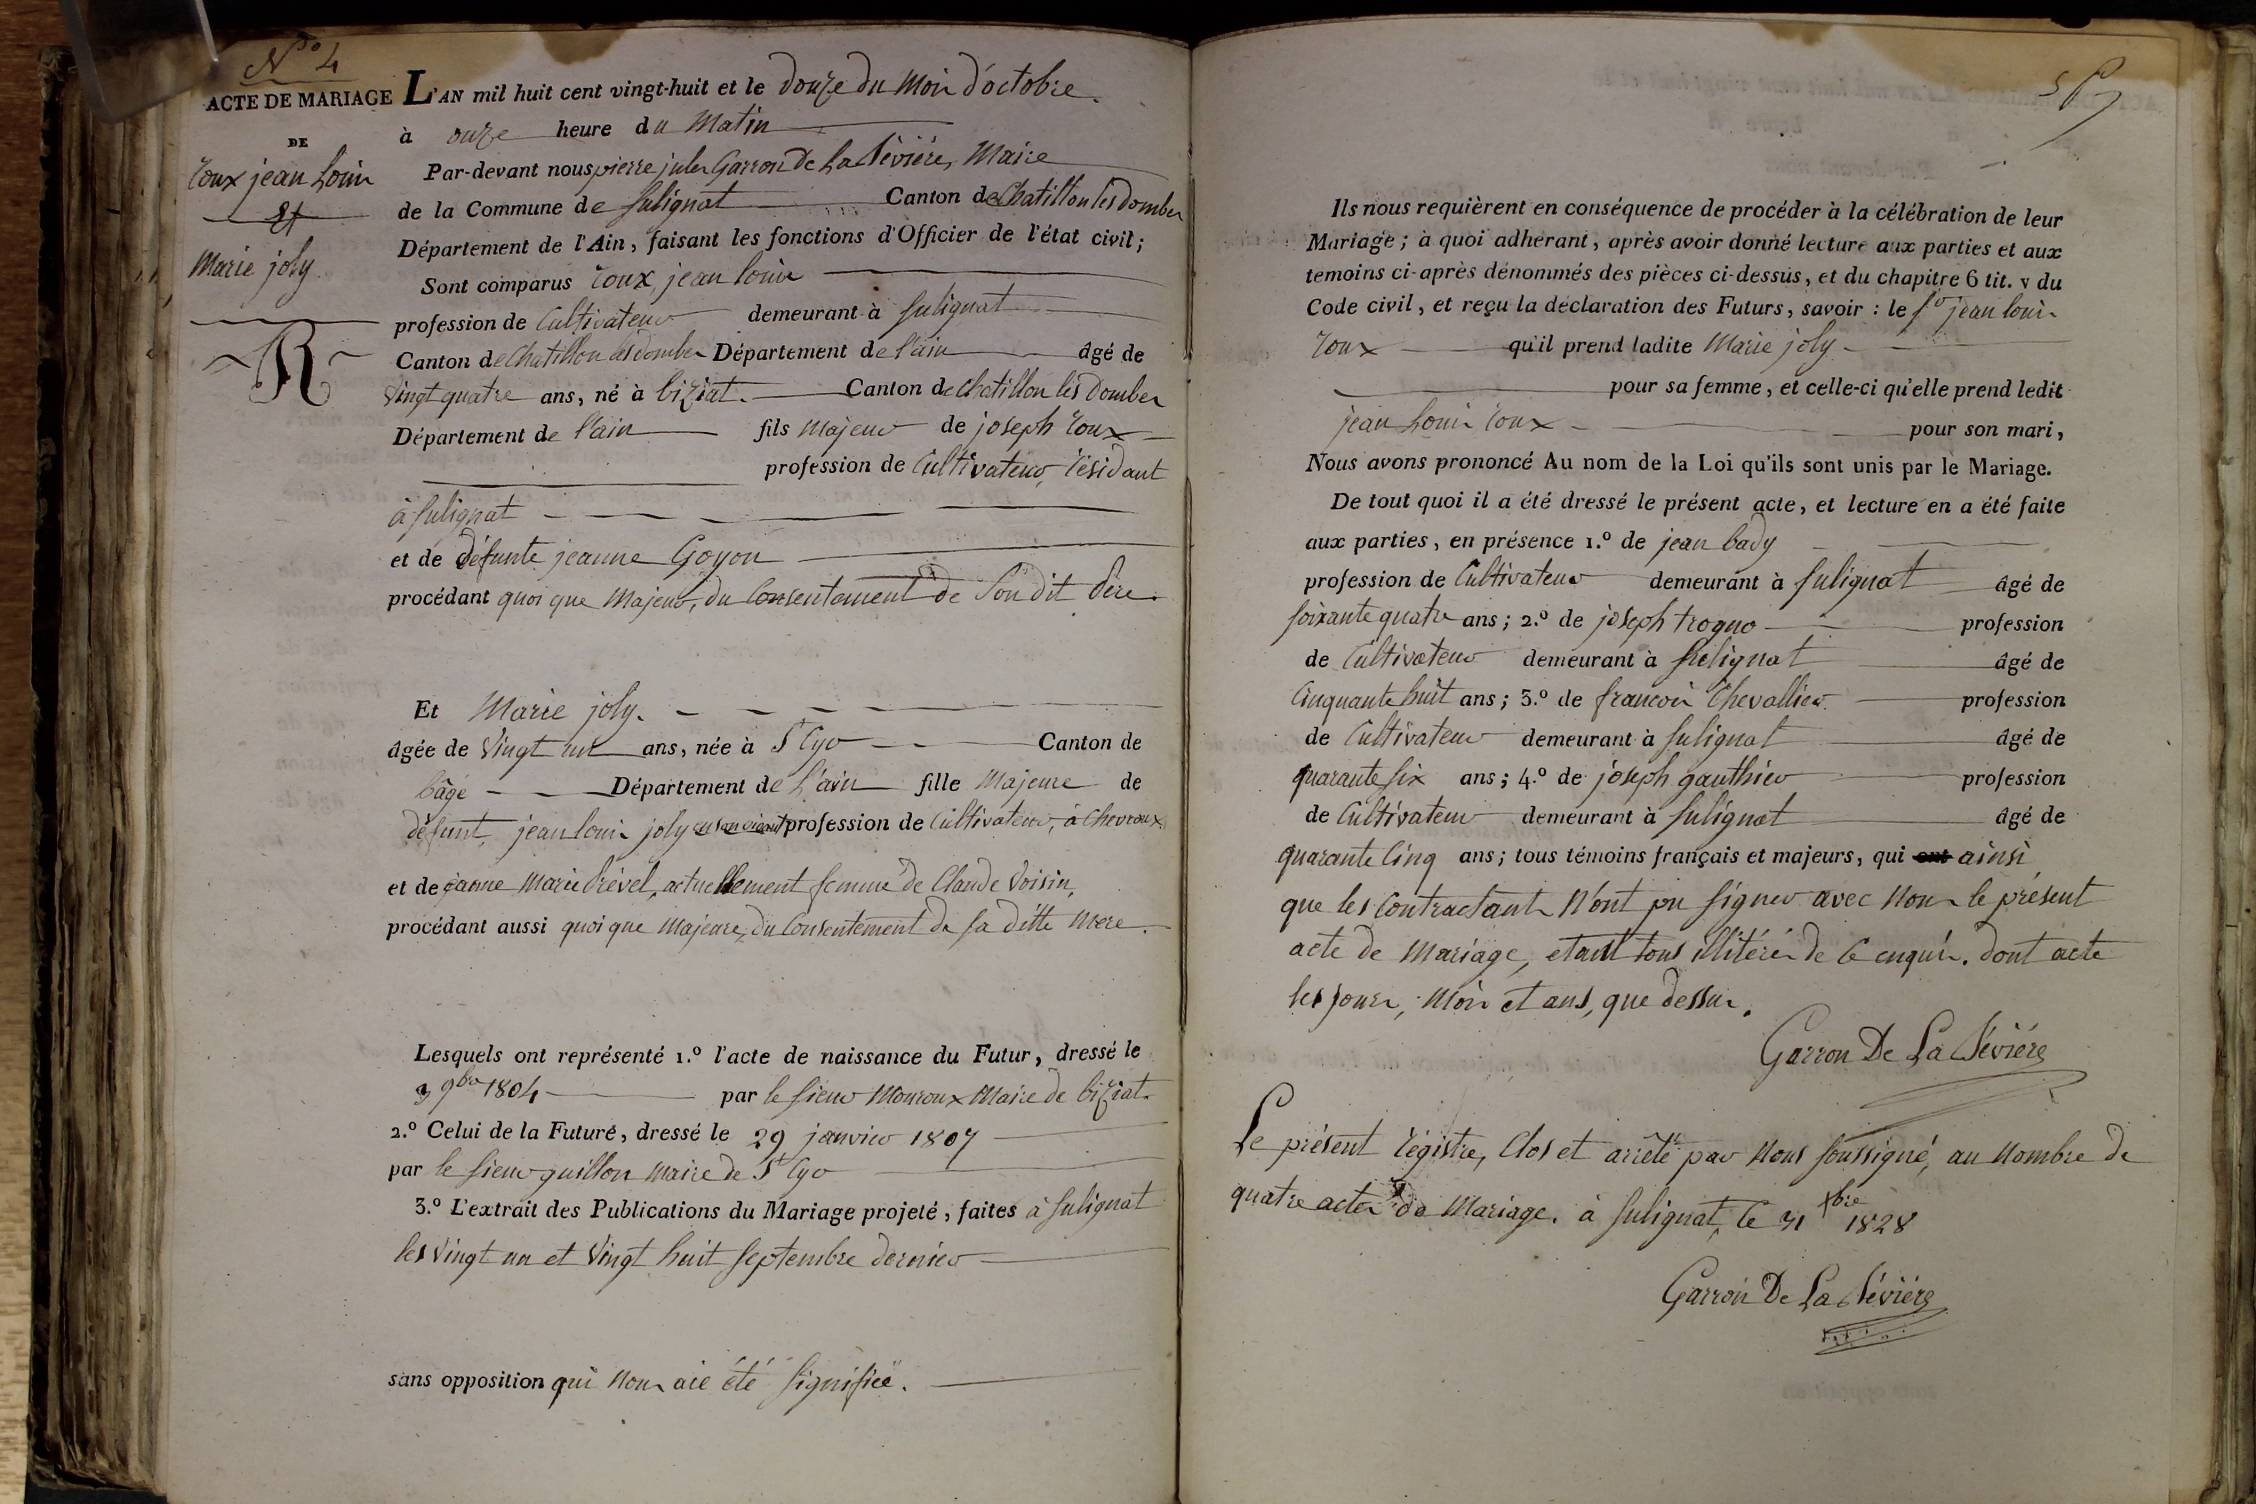 N° 4
ACTE DE MARIAGE
DE
Roux jean Louis
Et
Marie joly
R
L'AN mil huit cent vingt-huit et le douze du Mois d'octobre.
à onze heure du Matin
Par-devant nous pierre jules Garron De La Sévière, Maire
de la Commune de Sulignat Canton de Chatillon les dombes
Département de l'Ain, faisant les fonctions d'Officier de l'état civil;
Sont comparus Roux, jean louis
profession de Cultivateur demeurant à Sulignat
Canton de Chatillon les dombes Département de l'ain âgé de
Vingt quatre ans, né à biziat. Canton de Chatillon lès Dombes
Département de l'ain fils Majeur de joseph Roux
profession de Cultivateur, résidant
à Sulignat
et de défunte jeanne Goyon
procédant quoi que Majeur, du Consentement de Son dit Père.
Et Marie joly.
âgée de Vingt un ans, née à St Cyr Canton de
bâgé Département de L'ain fille Majeure de
défunt, jean louis joly en son vivant profession de Cultivateur, à Chevroux
et de jeanne Marie Prével, actuellement femme de Claude Voisin,
procédant aussi quoi que Majeure, du Consentement de sa ditte Mere.
Lesquels ont représenté 1.º l'acte de naissance du Futur, dressé le
3 9bre 1804 par le Sieur Monroux Maire de biziat.
2.º Celui de la Future, dressé le 29 janvier 1807
par le Sieur guillon Maire de St Cyr
3.º L'extrait des Publications du Mariage projeté, faites à Sulignat
les Vingt un et Vingt huit Septembre dernier
sans opposition qui Nous aie été Signifiée.
Ils nous requièrent en conséquence de procéder à la célébration de leur
Mariage; à quoi adhérant, après avoir donné lecture aux parties et aux
temoins ci-après dénommés des pièces ci-dessus, et du chapitre 6 tit. v du
Code civil, et reçu la déclaration des Futurs, savoir : le Sr jean louis
Roux qu'il prend ladite Marie joly
pour sa femme, et celle-ci qu'elle prend ledit
jean Louis Roux pour son mari,
Nous avons prononcé Au nom de la Loi qu'ils sont unis par le Mariage.
De tout quoi il a été dressé le présent acte, et lecture en a été faite
aux parties, en présence 1.º de jean bady
profession de Cultivateur demeurant à Sulignat âgé de
Soixante quatre ans; 2.º de joseph trogno profession
de Cultivateur demeurant à Sulignat âgé de
Cinquante huit ans; 3.º de francois Chevallier profession
de Cultivateur demeurant à Sulignat âgé de
quarante six ans; 4.º de joseph gauthier profession
de Cultivateur demeurant à Sulignat âgé de
quarante Cinq ans; tous témoins français et majeurs, qui ont ainsi
que les Contractants N'ont pu Signer avec Nous le présent
acte de Mariage, etant tous illitérés de Ce enquis. dont acte
les jours, Mois et ans, que dessus.
Garron De La Sévière
Le présent Régistre, Clos et arrêté par Nous Soussigné, au Nombre de
quatre actes de Mariage. à Sulignat, Ce 31 Xbre 1828
Garron De La Sévière